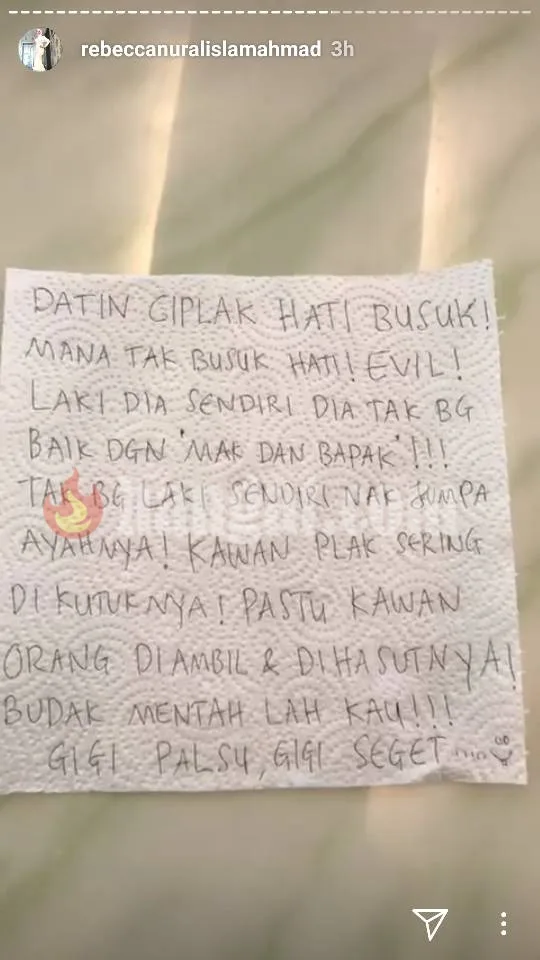 rebeccanuralislamahmad 3h
DATIN CIPLAK HATI BUSUK!
MANA TAK BUSUK HATI! EVIL!
LAKI DIA SENDIRI DIA TAK BG
BAIK DGN 'MAK DAN BAPAK'!!!
TAK BG LAKI SENDIRI NAK JUMPA
AYAHNYA! KAWAN PLAK SERING
DI KUTUKNYA! PASTU KAWAN
ORANG DIAMBIL & DIHASUTNYA!
BUDAK MENTAH LAH KAU!!!
GIGI PALSU, GIGI SEGET....